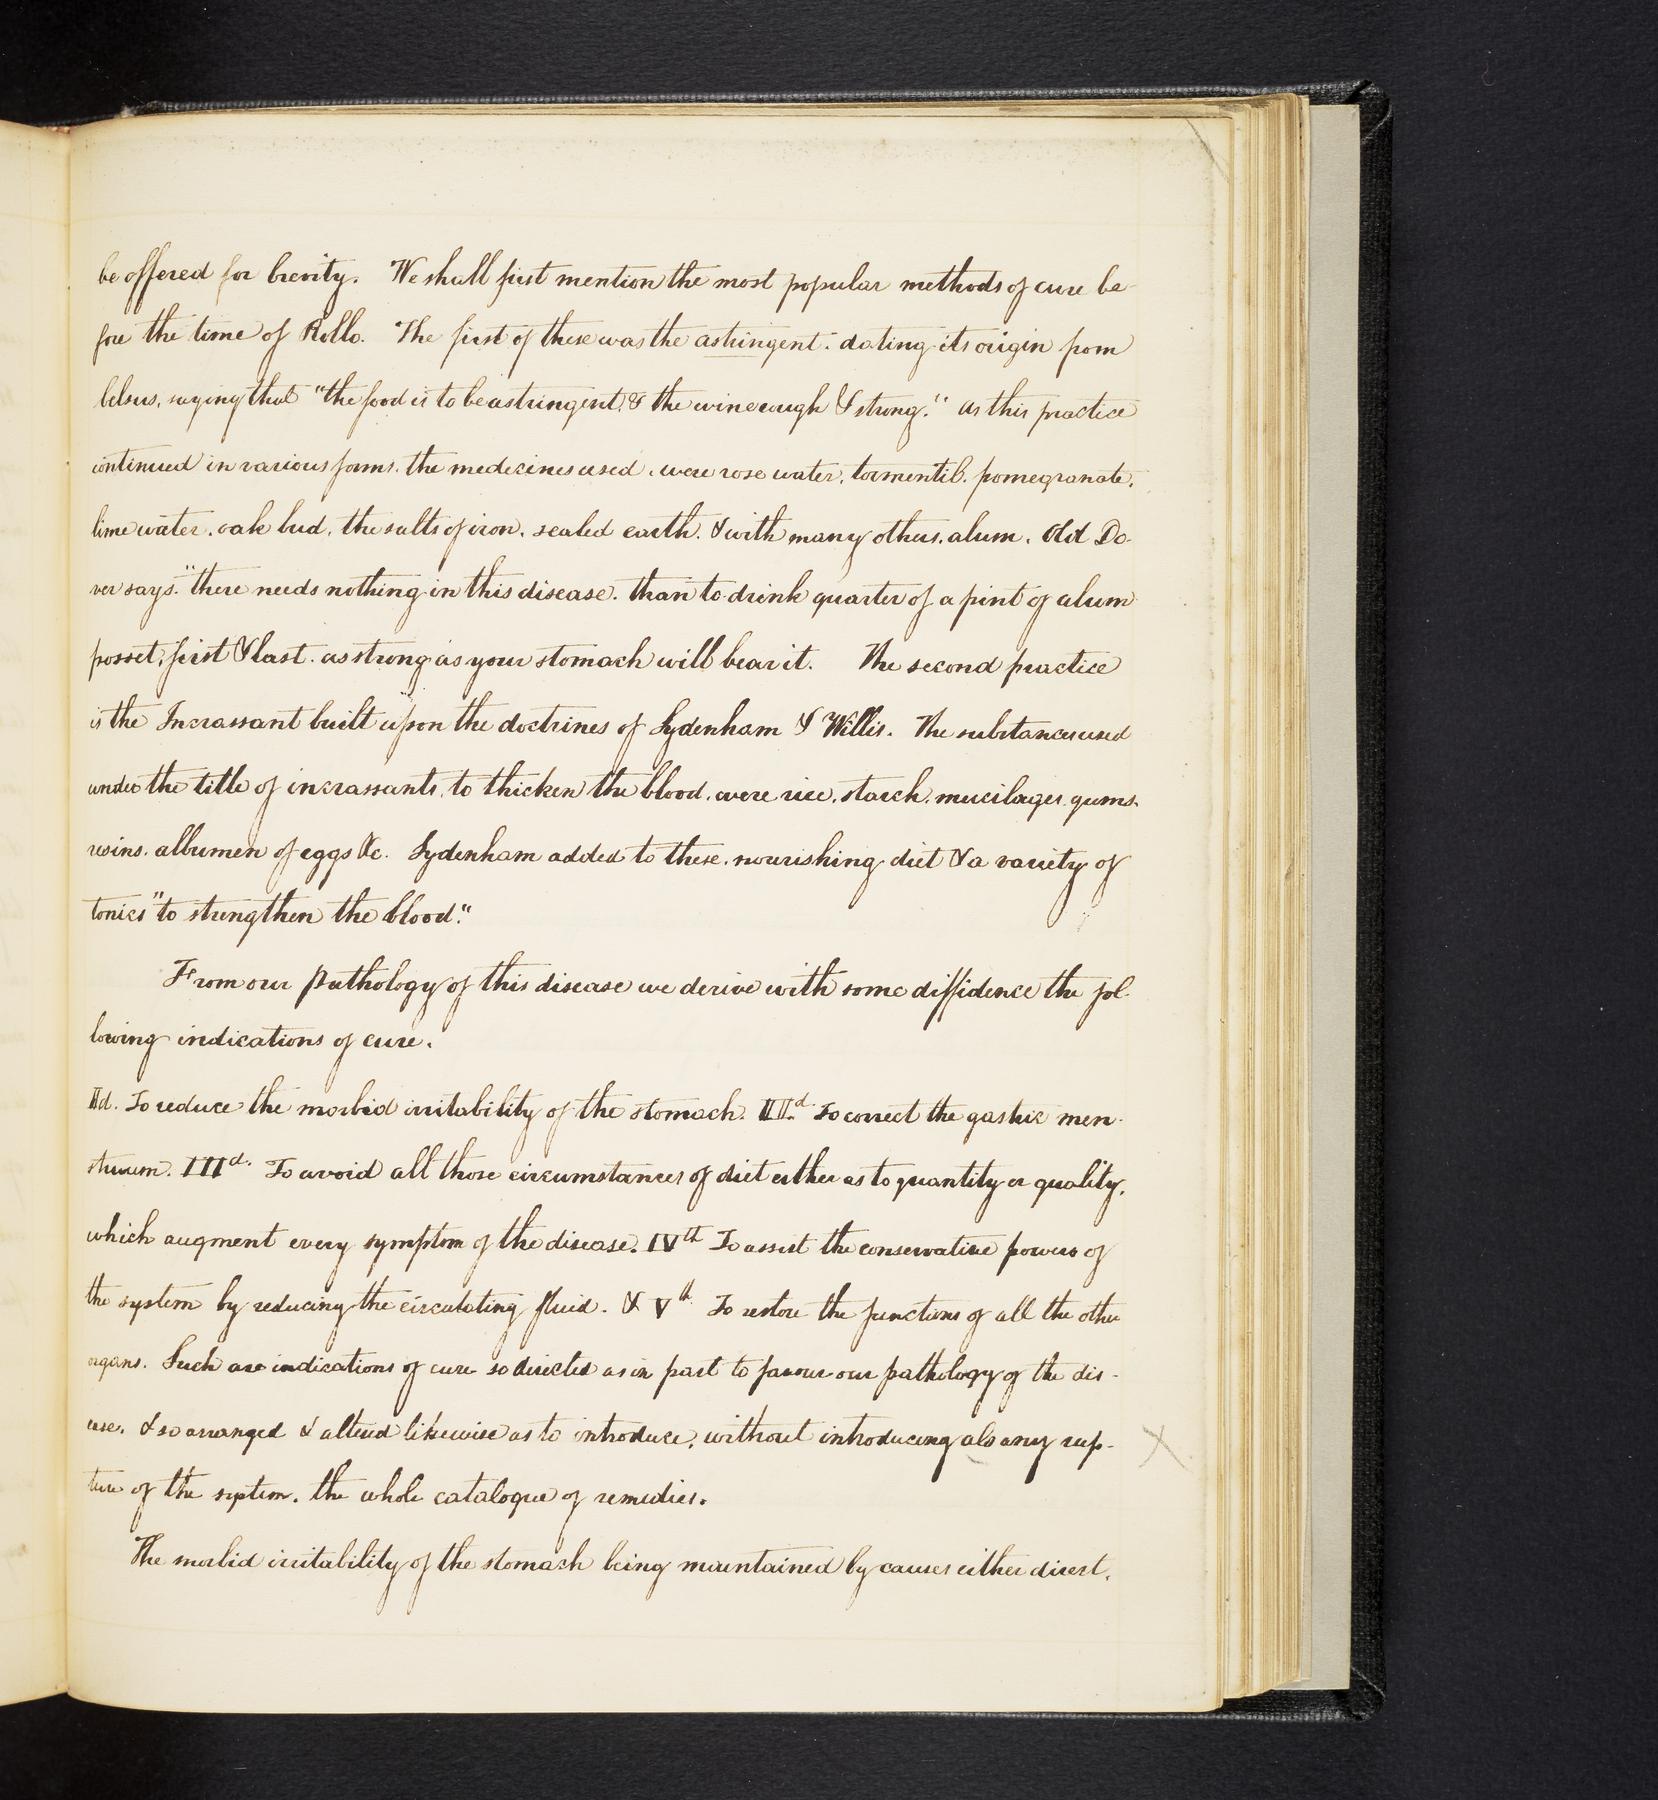 be offered for brevity. We shall first mention the most popular methods of cure be-
fore the time of Rollo. The first of these was the astringent. dating its origin from
Celsus, saying that "the food is to be astringent, & the wine rough & strong." As this practice
continued in various forms, the medicines used, were rose water, tormentil, pomegranate,
lime water, oak bud, the salts of iron, sealed earth, & with many others, alum. Old Do-
ver says "there needs nothing in this disease, than to drink quarter of a pint of alum
posset, first & last, as strong as your stomach will bear it. The second practice
is the Incrassant built upon the doctrines of Sydenham & Willis. The substances used
under the title of incrassants, to thicken the blood, were rice, starch, mucilages, gums,
resins, albumen of eggs &c. Sydenham added to these, nourishing diet & a variety of
tonics "to strengthen the blood."
From our Pathology of this disease we derive with some diffidence the fol-
lowing indications of cure.
To reduce the morbid irritability of the stomach. IId. To correct the gastric men-
struum. IIId. To avoid all those circumstances of diet either as to quantity or quality,
which augment every symptom of the disease. IVth To assist the conservative powers of
the system by reducing the circulating fluid. & Vth To restore the functions of all the other
organs. Such are indications of cure so directed as in part to favour our pathology of the dis-
ease, & so arranged & altered likewise as to introduce, without introducing also any rup-
ture of the system, the whole catalogue of remedies.
The morbid irritability of the stomach being maintained by causes either direct,